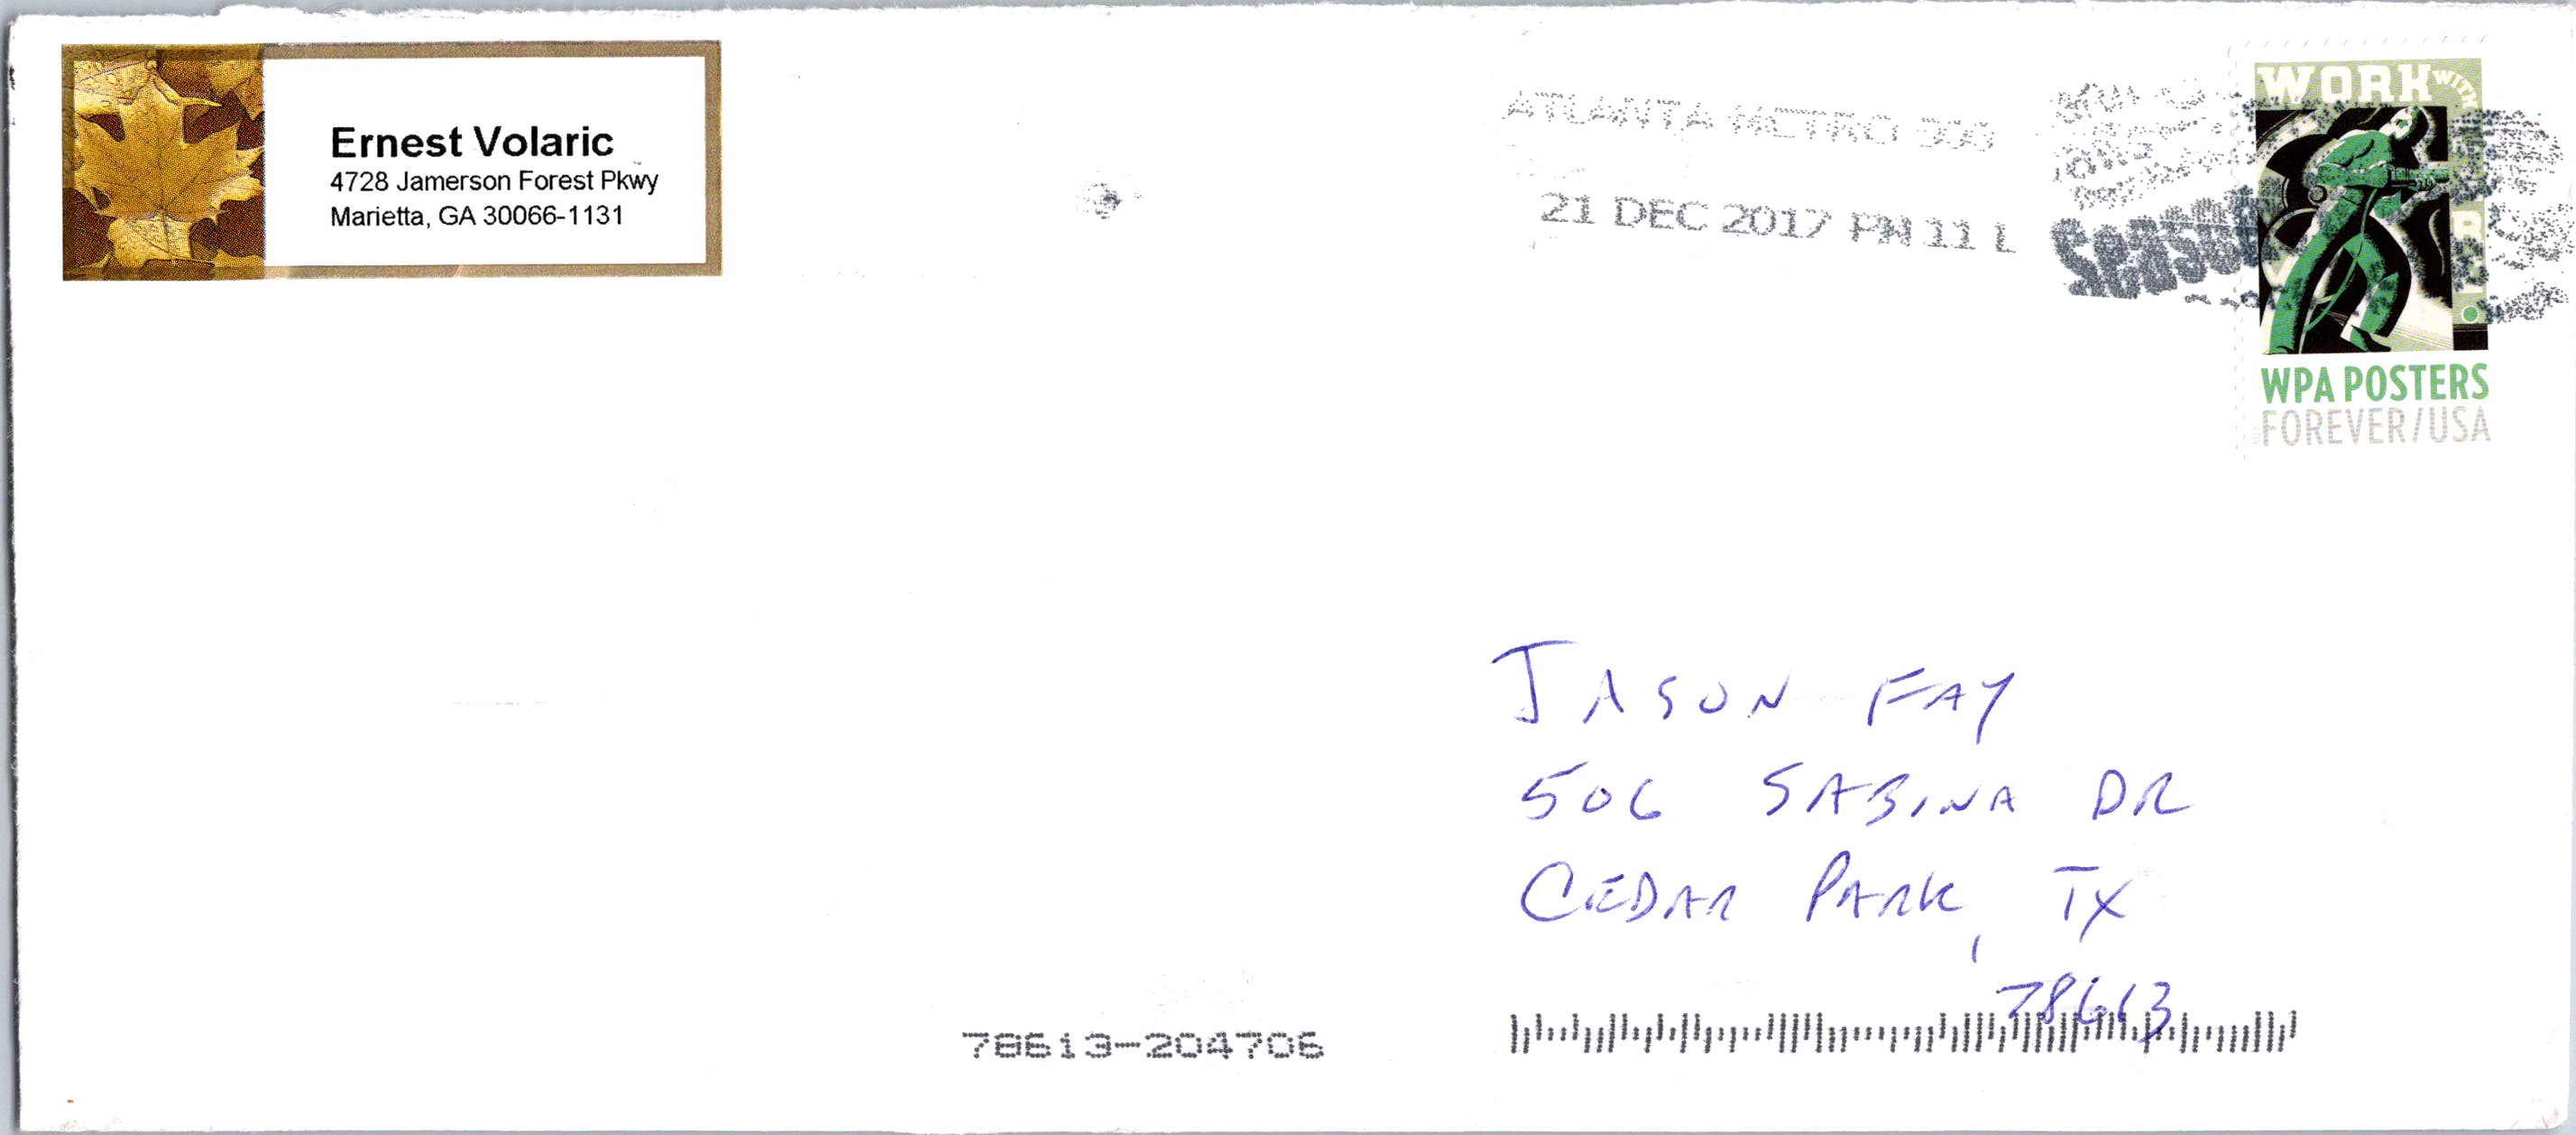 Ernest Volaric
4728 Jamerson Forest Pkwy
Marietta, GA 30066-1131
ATLANTA METRO
21 DEC 2017 PM 11 L
WORK WITH
WPA POSTERS
FOREVER/USA
JASON FAY
506 SABINA DR
CEDAR PARK, TX
78613
78613-204706